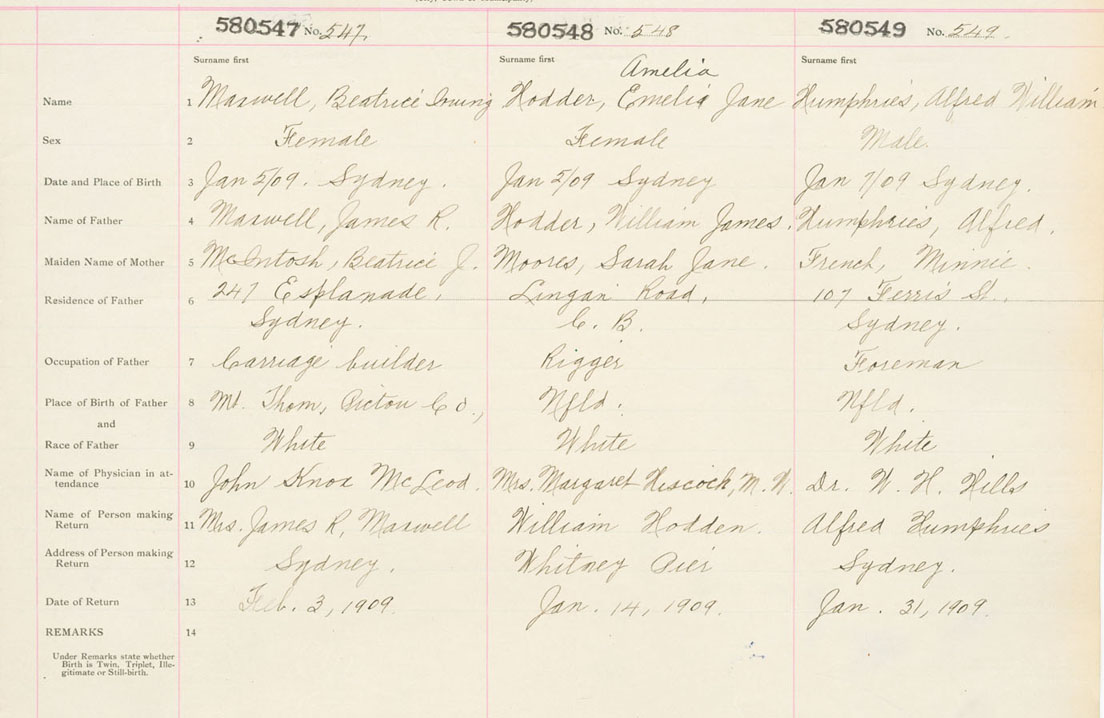 580547 No. 547 580548 No. 548 580549 No. 549
Surname first Surname first Surname first
Amelia
Name 1 Maxwell, Beatrice Irving Hodder, Emelia Jane Humphries, Alfred William
Sex 2 Female Female Male.
Date and Place of Birth 3 Jan 5/09. Sydney. Jan 5/09 Sydney Jan 7/09 Sydney.
Name of Father 4 Maxwell, James R. Hodder, William James. Humphries, Alfred.
Maiden Name of Mother 5 McIntosh, Beatrice J. Moores, Sarah Jane. French, Minnie.
Residence of Father 6 247 Esplanade, Lingan Road, 107 Ferris St.,
Sydney. C. B. Sydney.
Occupation of Father 7 Carriage builder Rigger Foreman
Place of Birth of Father 8 Mt. Thom, Pictou Co., Nfld. Nfld.
and
Race of Father 9 White White White
Name of Physician in at-
tendance 10 John Knox McLeod. Mrs. Margaret Hiscock, M. W. Dr. W. H. Hills
Name of Person making
Return 11 Mrs. James R, Maxwell William Hodden. Alfred Humphries
Address of Person making
Return 12 Sydney. Whitney Pier Sydney.
Date of Return 13 Feb. 3, 1909. Jan. 14, 1909. Jan. 31, 1909.
REMARKS 14
Under Remarks state whether
Birth is Twin, Triplet, Ille-
gitimate or Still-birth.